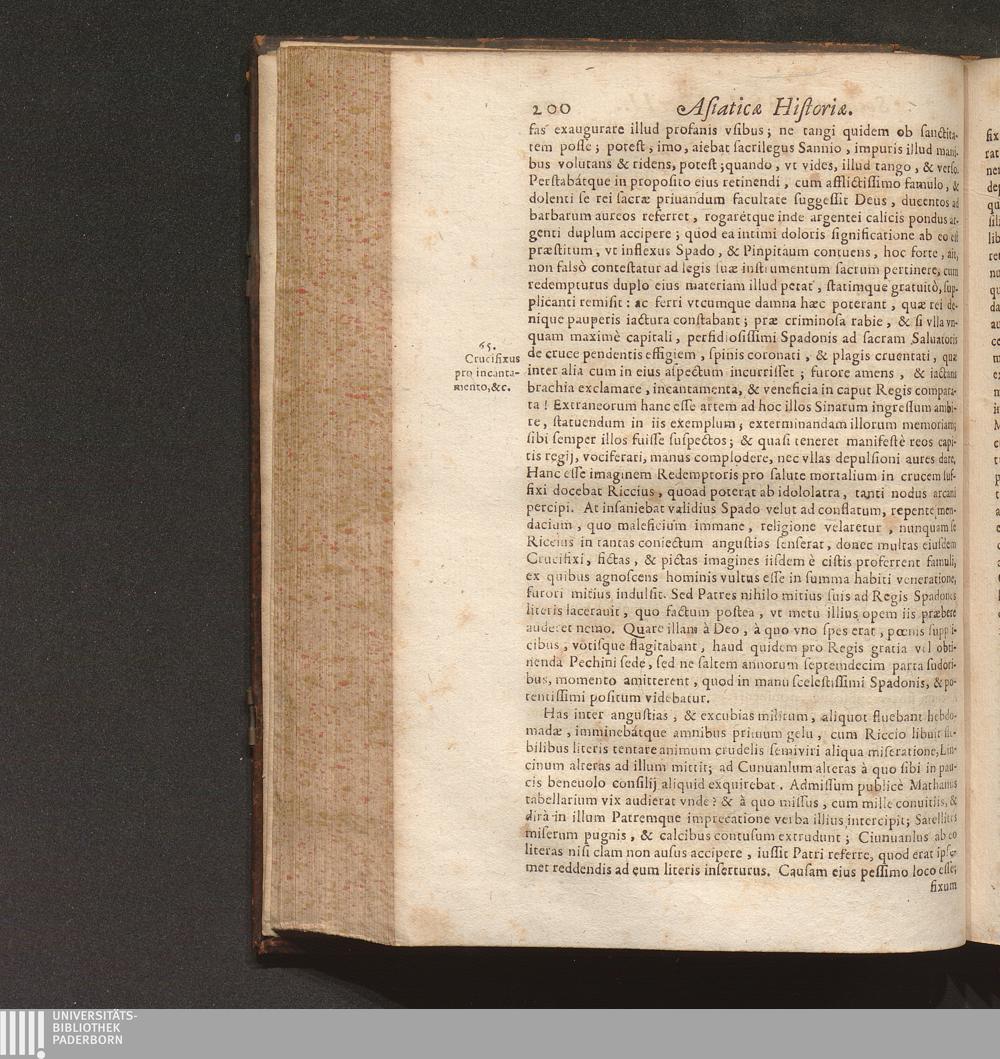 200 Aſiaticæ Hiſtoriæ.
fas exaugurare illud profanis vſibus; ne tangi quidem ob ſanctita-
tem poſſe; poteſt, imo, aiebat ſacrilegus Sannio, impuris illud mani-
bus volutans & ridens, poteſt; quando, vt vides, illud tango, & verſo.
Perſtabátque in propoſito eius retinendi, cum afflictiſſimo famulo, &
dolenti ſe rei ſacræ priuandum facultate ſuggeſſit Deus, ducentos ad
barbarum aureos referret, rogarétque inde argentei calicis pondus ar-
genti duplum accipere; quod ea intimi doloris ſignificatione ab eo eſt
præſtitum, vt inflexus Spado, & Pinpitaum contuens, hoc forte, ait,
non falsò conteſtatur ad legis ſuæ inſtrumentum ſacrum pertinere, cum
redempturus duplo eius materiam illud petat, ſtatimque gratuitò, ſup-
plicanti remiſit: ac ferri vtcumque damna hæc poterant, quæ rei de-
nique pauperis iactura conſtabant; præ criminoſa rabie, & ſi vlla vn-
quam maximè capitali, perfidioſiſſimi Spadonis ad ſacram Saluatoris
65.
Crucifixus
pro incanta-
mento, &c.
de cruce pendentis effigiem, ſpinis coronati, & plagis cruentati, quæ
inter alia cum in eius aſpectum incurriſſet; furore amens, & iactans
brachia exclamare, incantamenta, & veneficia in caput Regis compara-
ta! Extraneorum hanc eſſe artem ad hoc illos Sinarum ingreſſum ambi-
re, ſtatuendum in iis exemplum; exterminandam illorum memoriam;
ſibi ſemper illos fuiſſe ſuſpectos; & quaſi teneret manifeſtè reos capi-
tis regij, vociferari, manus complodere, nec vllas depulſioni aures dare.
Hanc eſſe imaginem Redemptoris pro ſalute mortalium in crucem ſuf-
fixi docebat Riccius, quoad poterat ab idololatra, tanti nodus arcani
percipi. At inſaniebat validius Spado velut ad conflatum, repente men-
dacium, quo maleficium immane, religione velaretur, nunquam ſe
Riccius in tantas coniectum anguſtias ſenſerat, donec multas eiuſdem
Crucifixi, fictas, & pictas imagines iiſdem è ciſtis proferrent famuli,
ex quibus agnoſcens hominis vultus eſſe in ſumma habiti veneratione,
furori mitius indulſit. Sed Patres nihilo mitius ſuis ad Regis Spadones
literis lacerauit, quo factum poſtea, vt metu illius opem iis præbere
auderet nemo. Quare illam à Deo, à quo vno ſpes erat, pœnis ſuppli-
cibus, votiſque flagitabant, haud quidem pro Regis gratia vel obti-
nenda Pechini ſede, ſed ne ſaltem annorum ſeptemdecim parta ſudori-
bus, momento amitterent, quod in manu ſceleſtiſſimi Spadonis, & po-
tentiſſimi poſitum videbatur.
Has inter anguſtias, & excubias militum, aliquot fluebant hebdo-
madæ, imminebátque amnibus primum gelu, cum Riccio libuit fle-
bilibus literis tentare animum crudelis ſemiviri aliqua miſeratione, Lin-
cinum alteras ad illum mittit; ad Cunuanlum alteras à quo ſibi in pau-
cis beneuolo conſilij aliquid exquirebat. Admiſſum publicè Mathanus
tabellarium vix audierat vnde? & à quo miſſus, cum mille conuitiis, &
dira in illum Patremque imprecatione verba illius intercipit; Satellites
miſerum pugnis, & calcibus contuſum extrudunt; Ciunuanlus ab eo
literas niſi clam non auſus accipere, iuſſit Patri referre, quod erat ipſe-
met reddendis ad eum literis inſerturus. Cauſam eius peſſimo loco eſſe;
fixum
UNIVERSITÄTS-
BIBLIOTHEK
PADERBORN